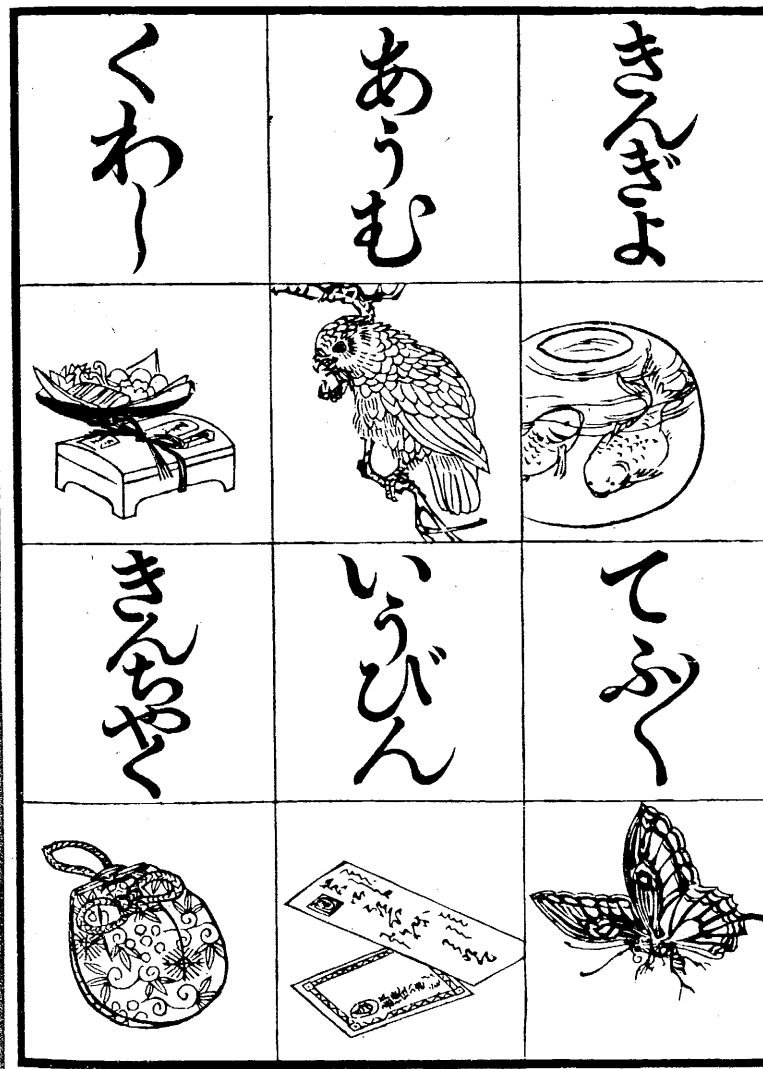 きんぎよ
あうむ
くわし
てふ〱
いうびん
きんちやく